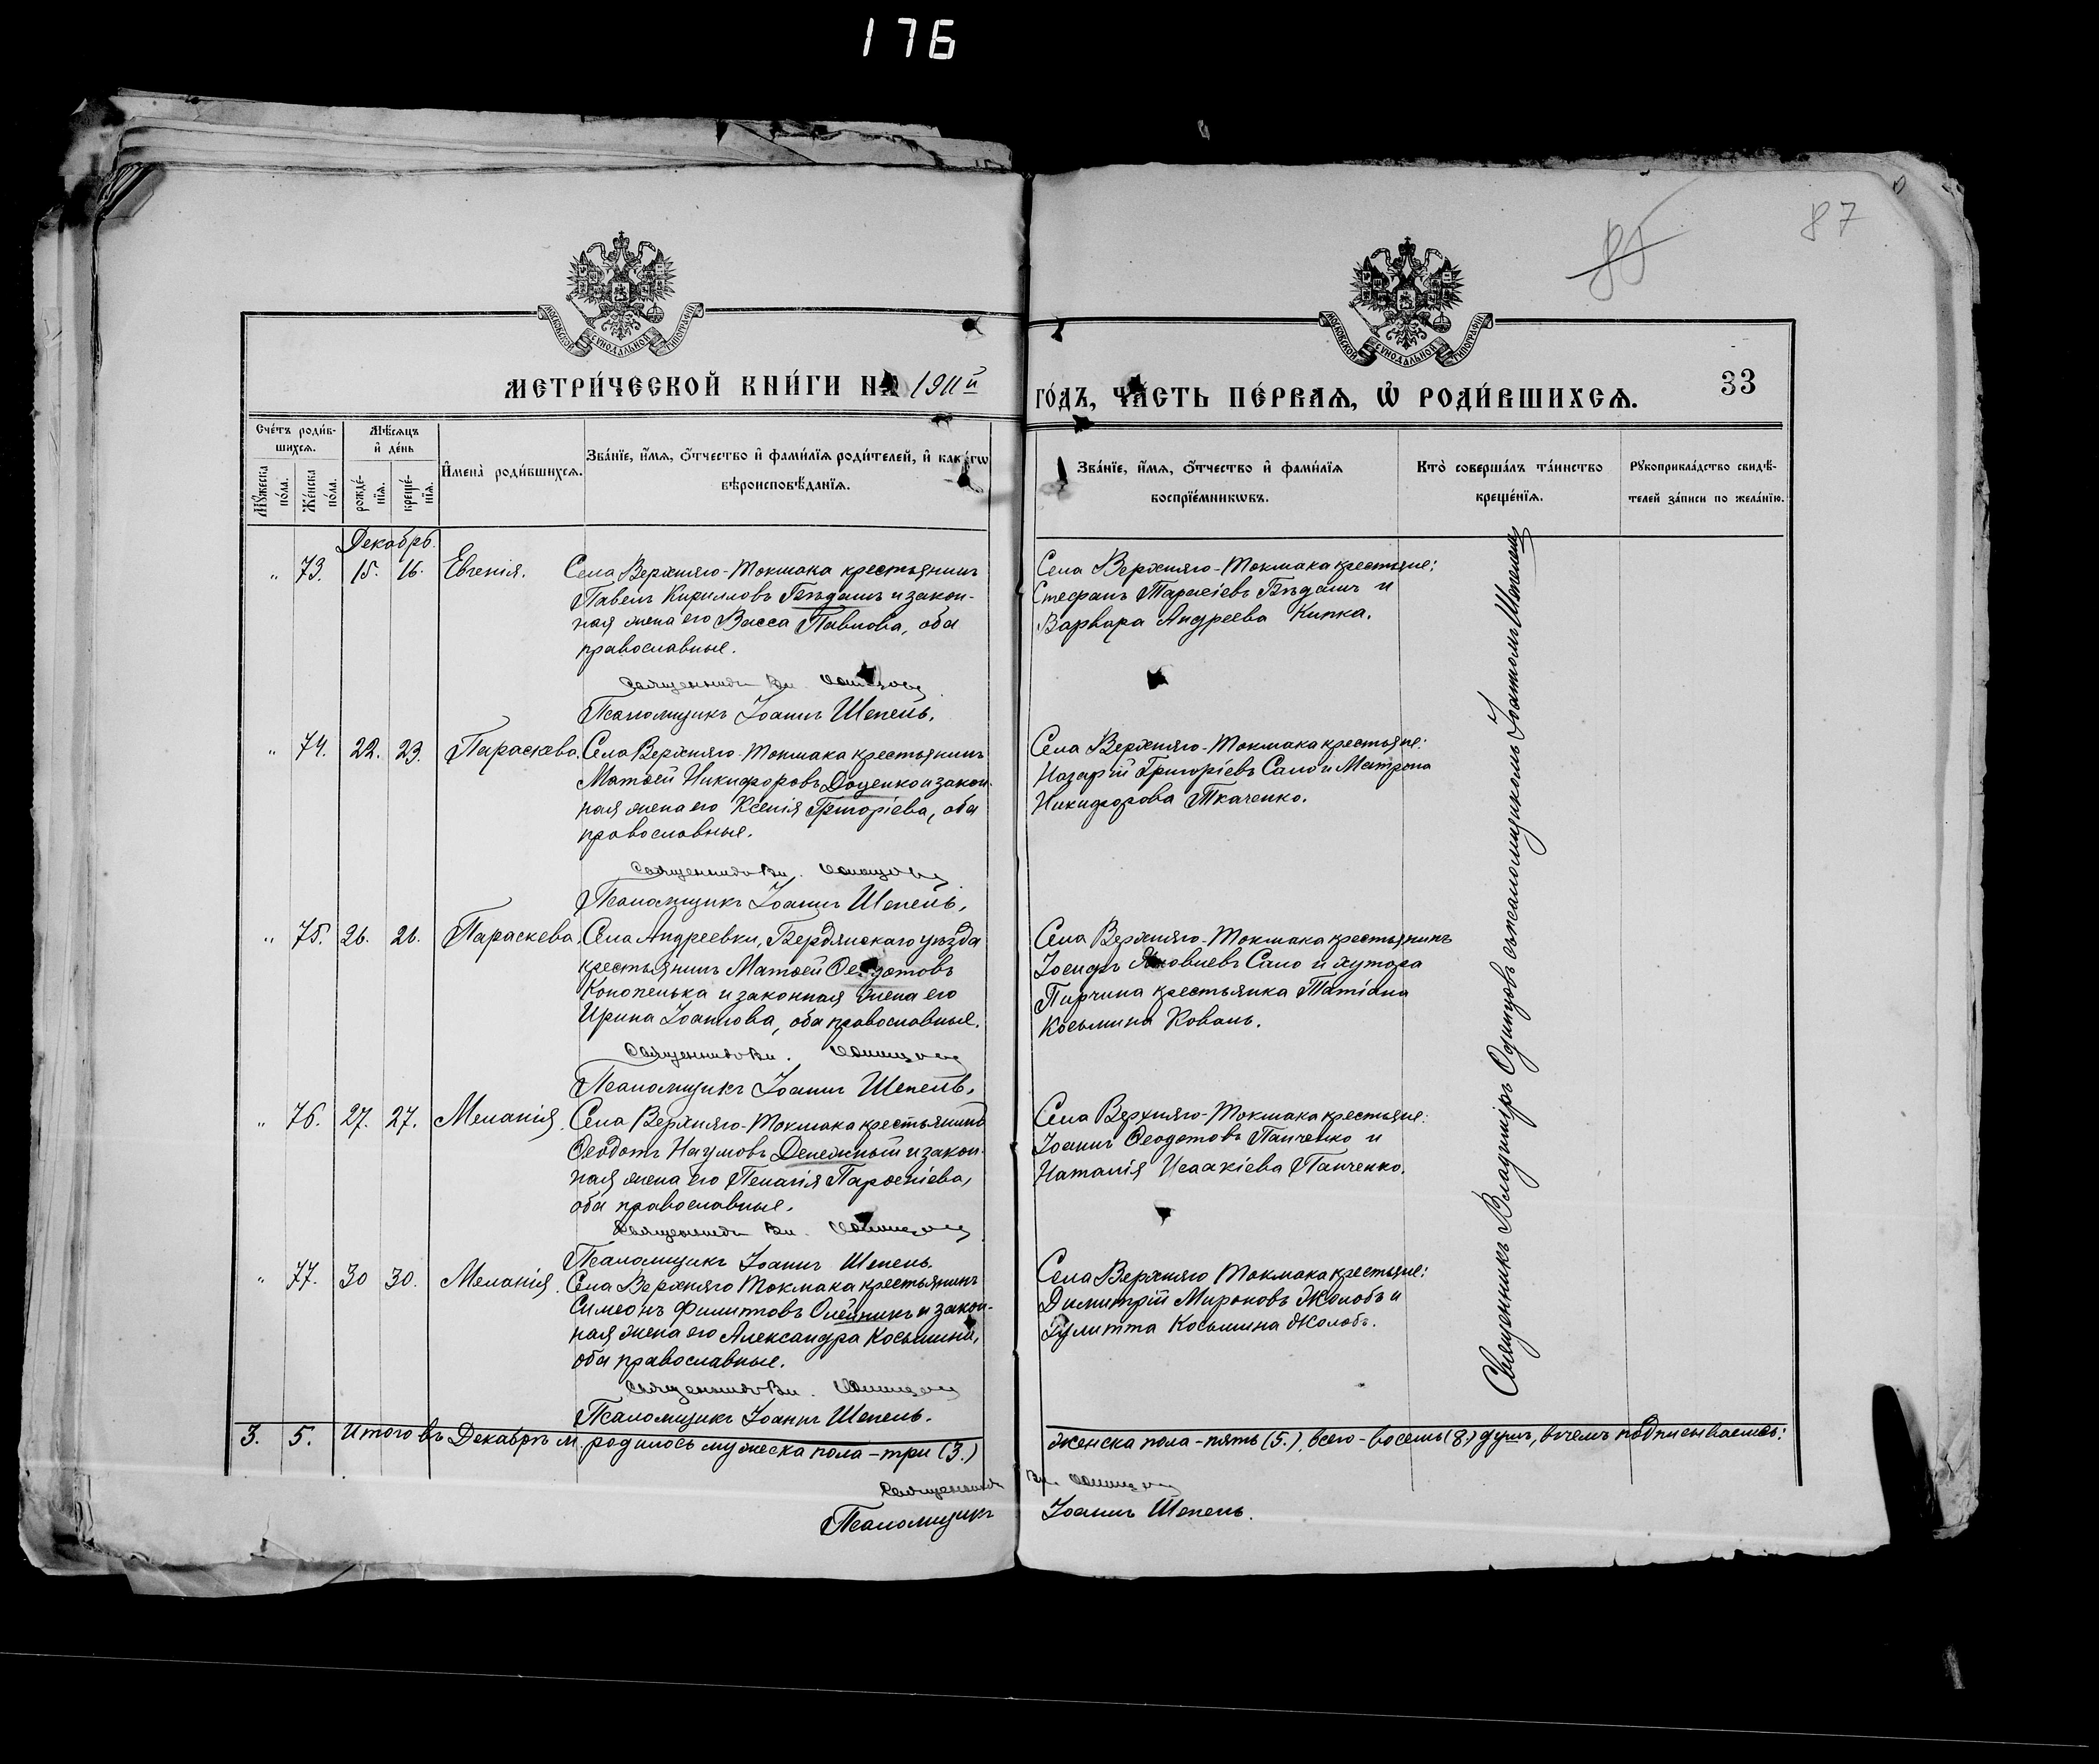 176
85
87
МОСКОВСКОЙ СѴНОДАЛЬНОЙ ТИПОГРАФІИ
МОСКОВСКОЙ СѴНОДАЛЬНОЙ ТИПОГРАФІИ
МЕТРИ́ЧЕСКОЙ КНИ́ГИ НА 1911й
ГО́ДЪ, ЧА́СТЬ ПЕ́РВАѦ, Ѡ҆ РОДИ́ВШИХСѦ.
33
Сче́тъ роди́в-
шихсѧ.
Мꙋ́жеска по́ла.
Же́нска по́ла.
Мѣ́сѧцъ
и҆ де́нь
рожде́-
нїѧ.
креще́-
нїѧ.
И҆мена̀ роди́вшихсѧ.
Зва́нїе, и҆́мѧ, ѻ҆́тчество и҆ фами́лїѧ роди́телей, и҆ како́гѡ
вѣроисповѣ́данїѧ.
Зва́нїе, и҆́мѧ, ѻ҆́тчество и҆ фами́лїѧ
воспрїе́мникѡвъ.
Кто̀ соверша́лъ та́инство
креще́нїѧ.
Рꙋкоприкла́дство свидѣ́-
телей за́писи по жела́нїю.
Декабрь.
„ 73. 15. 16. Евгенія.
Села Верхняго-Токмака крестьянинъ
Павелъ Кирилловъ Бѣдашъ и закон-
ная жена его Васса Павлова, оба
православные.
Священникъ Вл. Одинцовъ
Псаломщикъ Іоаннъ Шепель.
Села Верхняго-Токмака крестьяне:
Стефанъ Тарасіевъ Бѣдашъ и
Варвара Андреева Кипка.
„ 74. 22. 23. Параскева.
Села Верхняго-Токмака крестьянинъ
Матѳей Никифоровъ Доценко и закон-
ная жена его Ксенія Григоріева, оба
православные.
Священникъ Вл. Одинцовъ
Псаломщикъ Іоаннъ Шепель.
Села Верхняго-Токмака крестьяне:
Назарій Григоріевъ Сало и Матрона
Никифорова Ткаченко.
„ 75. 26. 26. Параскева.
Села Андреевки, Бердянскаго уѣзда
крестьянинъ Матѳей Ѳеодотовъ
Конопелька и законная жена его
Ирина Іоаннова, оба православные.
Священникъ Вл. Одинцовъ
Псаломщикъ Іоаннъ Шепель.
Села Верхняго-Токмака крестьянинъ
Іосифъ Яковлевъ Сало и хутора
Пирчина крестьянка Татіана
Косьмина Коваль.
„ 76. 27. 27. Меланія.
Села Верхняго-Токмака крестьянинъ
Ѳеодотъ Наумовъ Денежный и закон-
ная жена его Пелагія Парѳеніева,
оба православные.
Священникъ Вл. Одинцовъ
Псаломщикъ Іоаннъ Шепель.
Села Верхняго-Токмака крестьяне:
Іоаннъ Ѳеодотовъ Панченко и
Наталія Исаакіева Панченко.
„ 77. 30 30. Меланія.
Села Верхняго Токмака крестьянинъ
Симеонъ Филипповъ Олейникъ и закон-
ная жена его Александра Косьмина,
оба православные.
Священникъ Вл. Одинцовъ
Псаломщикъ Іоаннъ Шепель.
Села Верхняго Токмака крестьяне:
Димитрій Мироновъ Жолобъ и
Іулитта Косьмина Жолобъ.
Священникъ Владиміръ Одинцовъ съ псаломщикомъ Іоанномъ Шепелемъ
3. 5. Итого въ Декабрѣ м. родилось мужеска пола – три (3.)
женска пола – пять (5.), всего – восемь (8.) душъ, въ чемъ подписываемся:
Священникъ Вл. Одинцовъ
Псаломщикъ Іоаннъ Шепель.